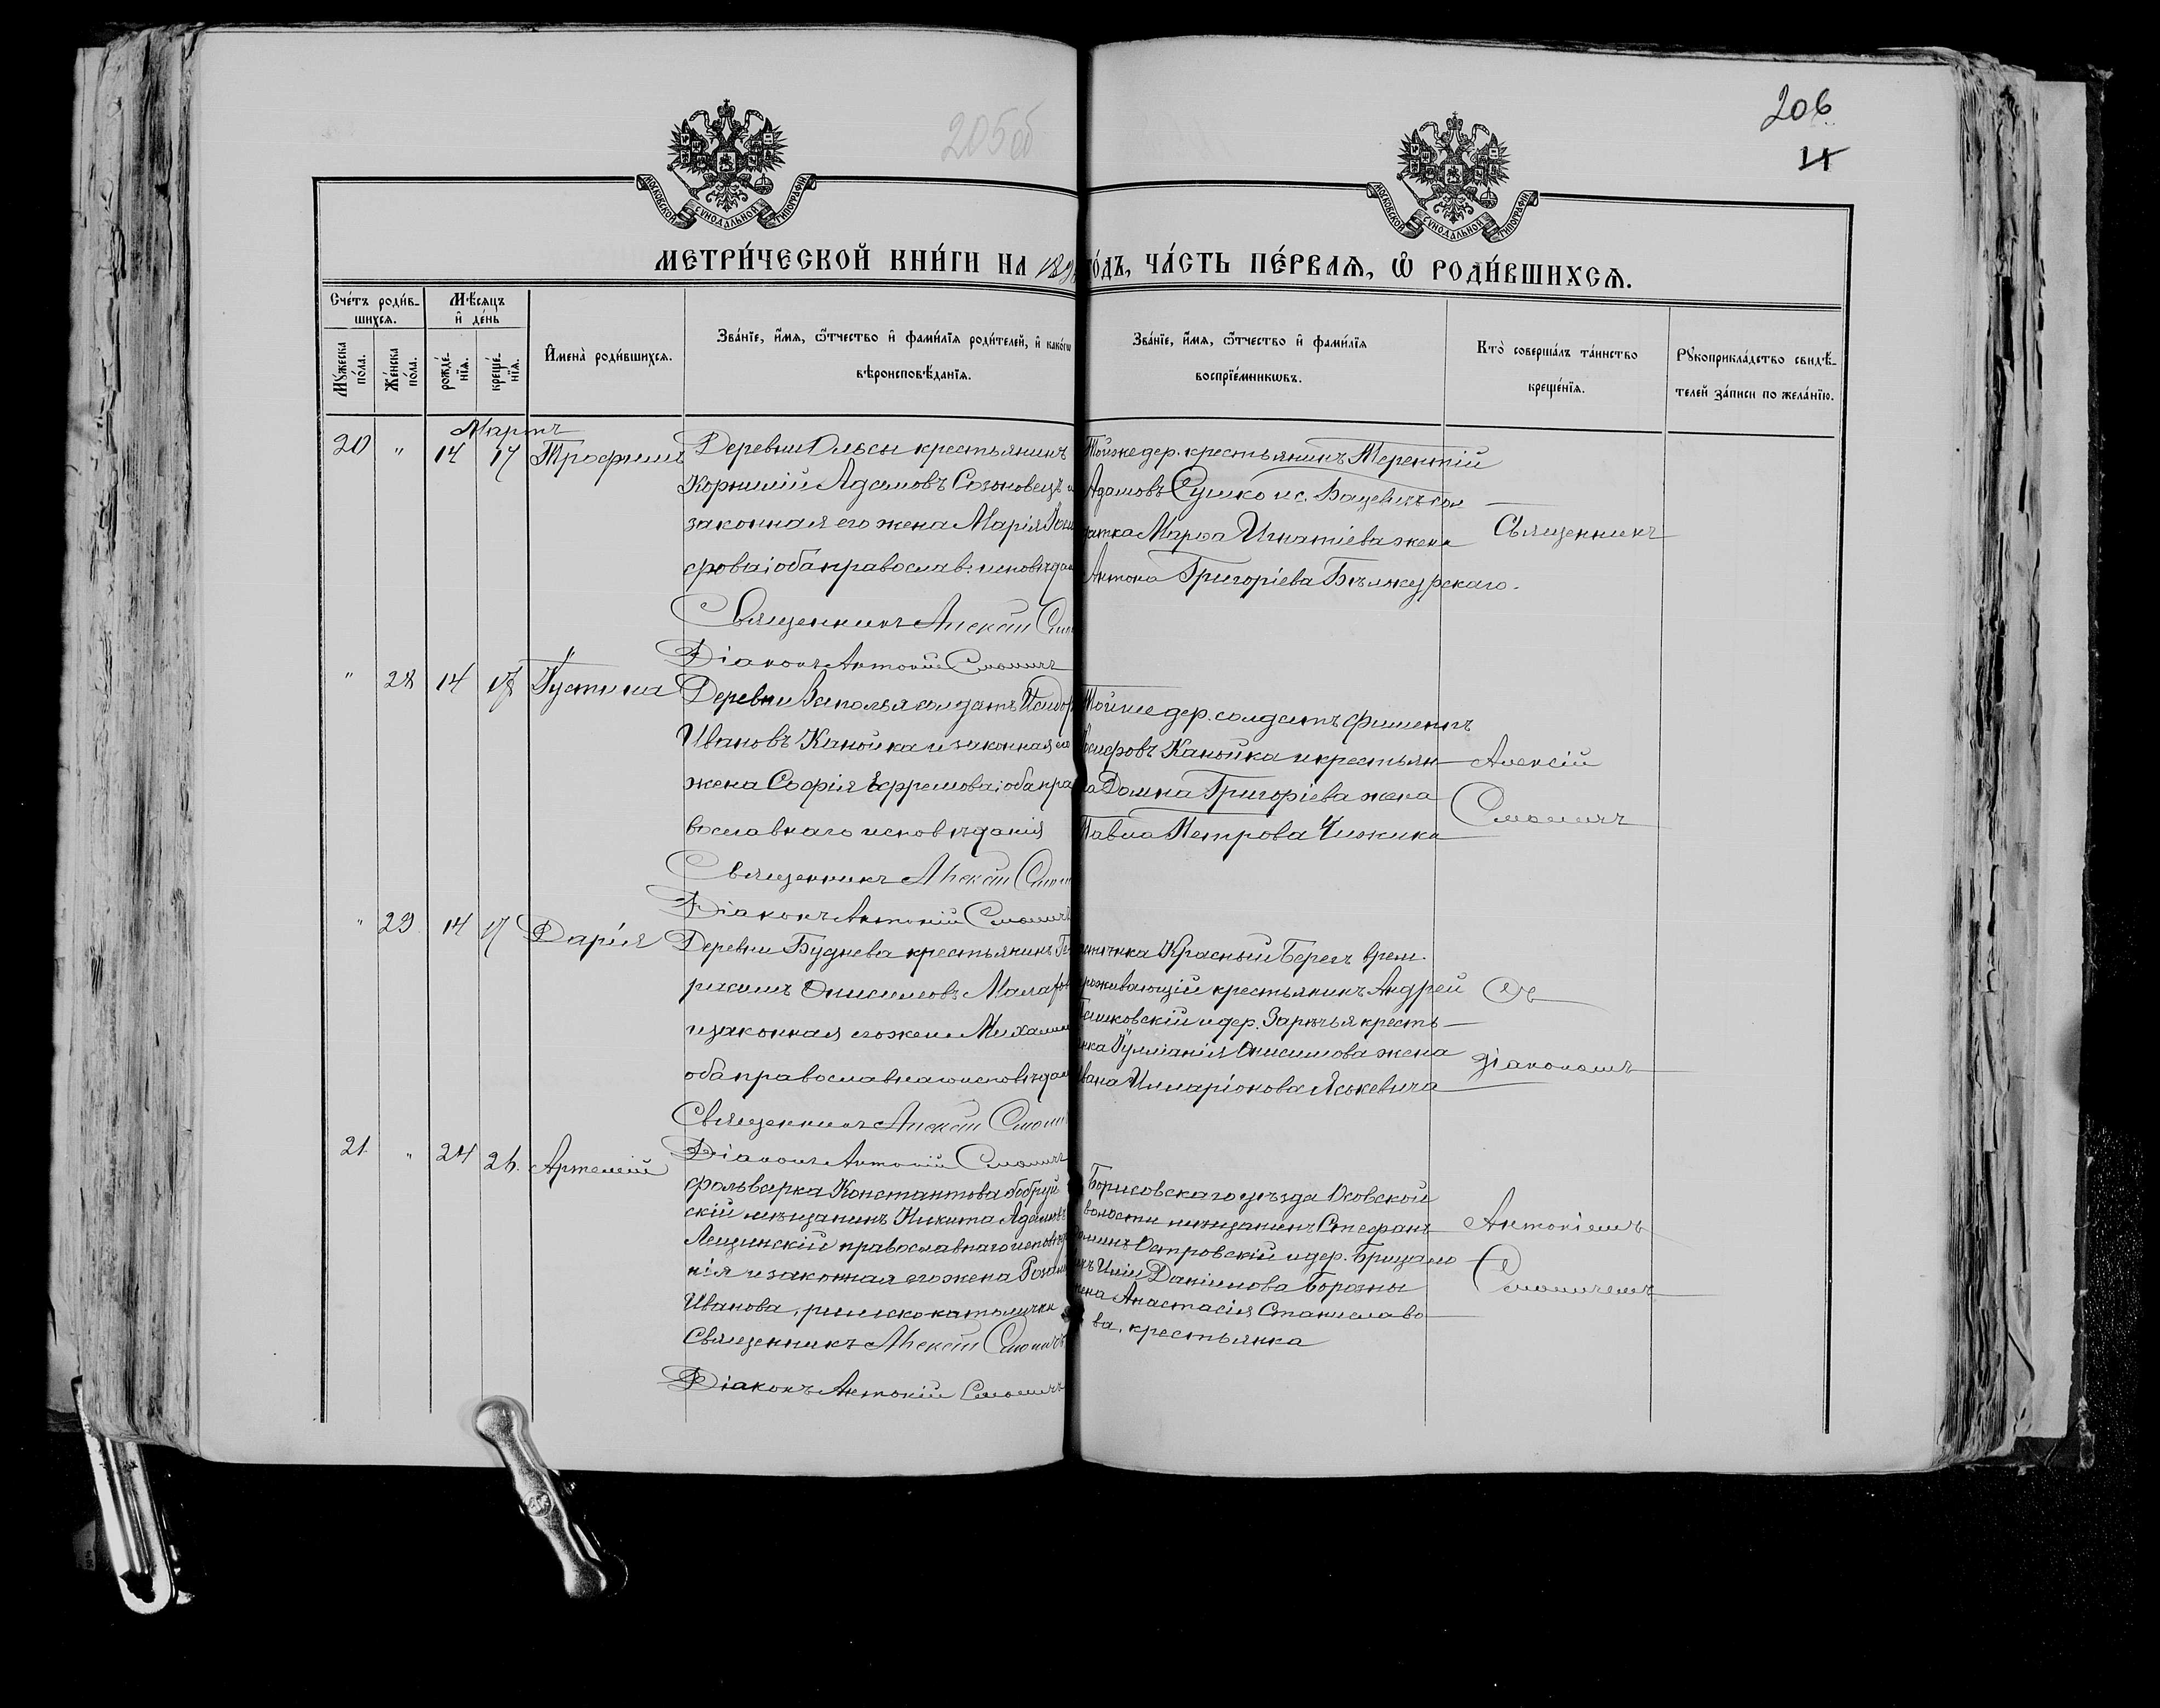 205об
206
11
МОСКОВСКОЙ СѴНОДАЛЬНОЙ ТИПОГРАФІИ
МОСКОВСКОЙ СѴНОДАЛЬНОЙ ТИПОГРАФІИ
МЕТРИ́ЧЕСКОЙ КНИ́ГИ НА 189 ГО́ДЪ, ЧА́СТЬ ПЕ́РВАѦ, Ѽ РОДИ́ВШИХСѦ.
Сче́тъ роди́в-
шихсѧ.
Мѣ́сѧцъ
и҆ де́нь
Мꙋ́жеска по́ла.
Же́нска по́ла.
рожде́-
нїѧ.
креще́-
нїѧ.
И҆мена̀ роди́вшихсѧ.
Зва́нїе, и҆́мѧ, ѻ҆́тчество и҆ фами́лїѧ роди́телей, и҆ како́гѡ
вѣроисповѣ́данїѧ.
Зва́нїе, и҆́мѧ, ѻ҆́тчество и҆ фами́лїѧ
воспрїе́мникѡвъ.
Кто̀ соверша́лъ та́инство
креще́нїѧ.
Рꙋкоприкла́дство свидѣ́-
телей за́писи по жела́нїю.
Мартъ
20 " 14 17 Трофимъ
Деревни Ольсы крестьянинъ
Корнилій Адамовъ Созоновецъ и
законная его жена Марія
сфова; оба православ. исповѣдан
Священникъ Алексій
Діаконъ Антоній Смоличъ
Тойже дер. крестьянинъ Терентій
Адамовъ Сушко и с. Бацевичъ сол
датка Марѳа Игнатіева жена
Антона Григоріева Бѣлжурскаго.
Священникъ
" 28 14 17 Іустина
Деревни Заполья солдатъ Исидоръ
Ивановъ Канойка и законная его
жена Софія Ефремова; оба пра
вославнаго исповѣданія
Священникъ Алексій
Діаконъ Антоній Смоличъ
Тойже дер. солдатъ Филиппъ
Іосифовъ Канойка и крестьян
ка Домна Григоріева жена
Павла Петрова Чижика
Алексій
Смоличъ
" 29 14 17 Дарія
Деревни Буднева крестьянинъ Ге
расимъ Онисимовъ
и законная его жена
оба православнаго исповѣдан
Священникъ Алексій Смолич
Діаконъ Антоній Смоличъ
Красный Берегъ врем.
проживающій крестьянинъ Андрей
и дер. Зарѣчья кресть
янка Іуліанія Онисимова жена
Ивана Илларіонова Яськевича
Съ
діакономъ
21 " 24 26 Артемій
фольварка Константова бобруй
скій мѣщанинъ Никита Адамовъ
Лещинскій православнаго исповѣда
нія и законная его жена
Иванова, римско католичка
Священникъ Алексій Смоличъ
Діаконъ Антоній Смоличъ
Борисовскаго уѣзда Осовской
волости мѣщанинъ Стефанъ
Островскій и дер.
Иліи Даніилова
жена Анастасія Станиславо
ва, крестьянка
Антоніемъ
Смоличемъ